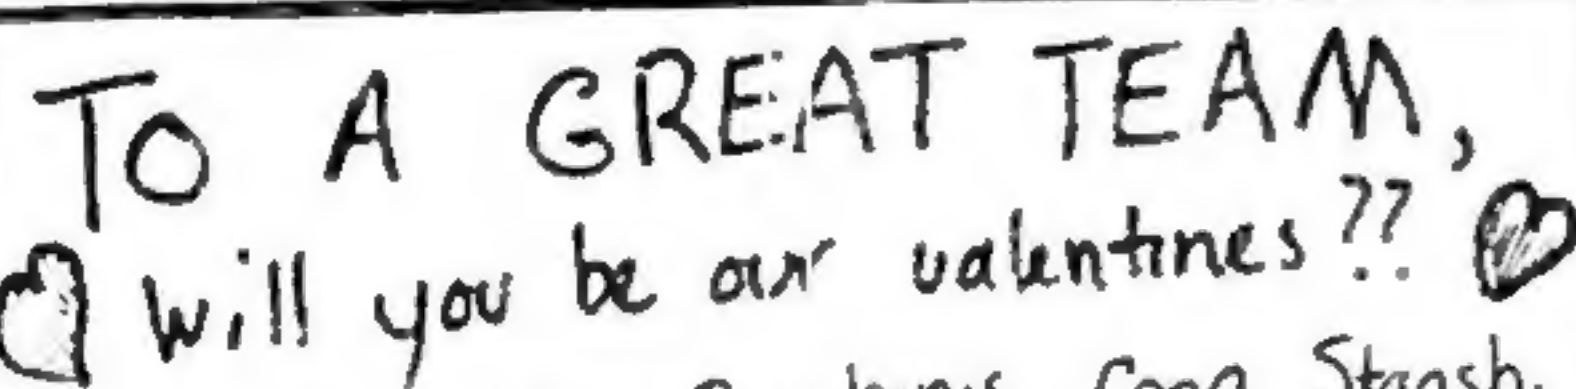 TO A GREAT TEAM,
will you be our valentines??